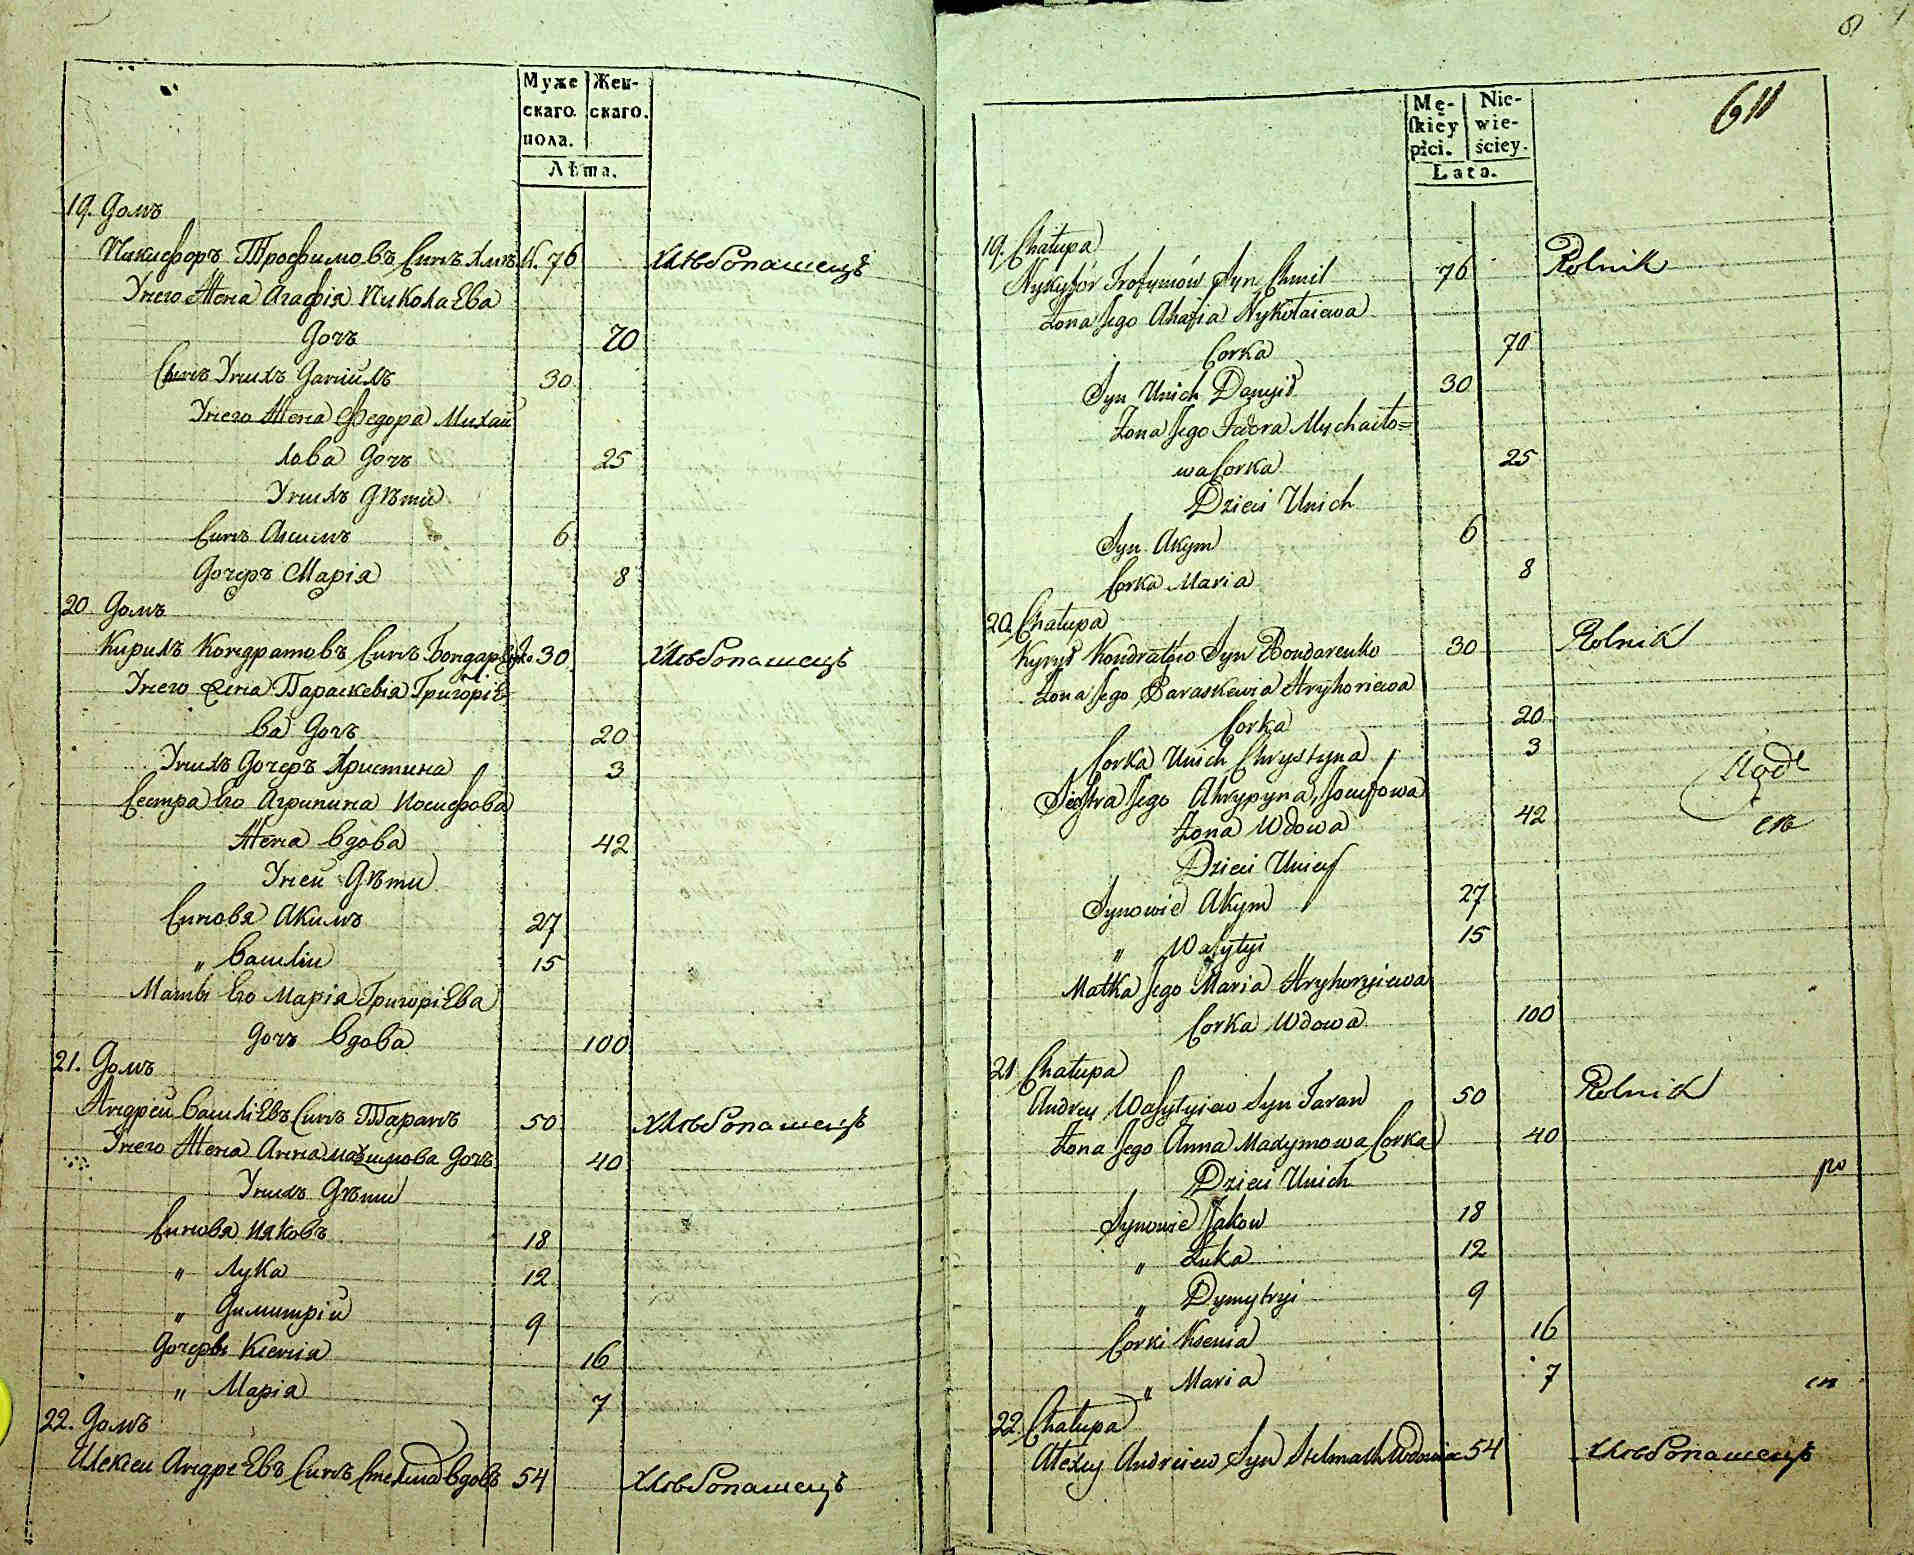 Муже
скаго
пола.
Жен-
скаго.
Лѣта.
19. Домъ
Никифоръ Трофимовъ Синъ Хміль 76 Хлѣбопашецъ
Унего Жена Агафія Николаева
Дочъ 70
Синъ Унихъ Даниилъ 30
Унего Жена Федора Михай
лова Дочъ 25
Унихъ Дѣти
Синъ Акимъ 6
Дочеръ Марія 8
20 Домъ
Кирилъ Кондратовъ Синъ Бондаренко 30 Хлѣбопашецъ
Унего Жена Параскевія Григоріе
ва Дочъ 20
Унихъ Дочеръ Христина 3
Сестра Его Агрипина Иосифова
Жена вдова 42
Уней Дѣти
Синовя Акимъ 27
„ Василіи 15
Мать Его Марія Григоріева
дочъ вдова 100
21. Домъ
Андрей Василіевъ Синъ Таранъ 50 Хлѣбопашецъ
Унего Жена Анна Махимова Дочъ 40
Унихъ Дѣти
Синовя Иаковъ 18
„ Лука 12
„ Димитрій 9
Дочеры Ксенія 16
„ Марія 7
22. Домъ
Алексеи Андреевъ Синъ Стелмах вдовъ 54 Хлѣбопашецъ
611
Mę-
skiey
płci.
Nie-
wie-
ściey.
Lata.
19. Chałupa
Nykyfor Trofymów Syn Chmil 76 Rolnik
Żona Jego Ahafia Nykołaiewa
Corka 70
Syn Unich Danyił 30
Żona Jego Fedora Mychaiło=
wa Corka 25
Dzieci Unich
Syn Akym 6
Corka Maria 8
20. Chałupa
Kyrył Kondratów Syn Bondarenko 30 Rolnik
Żona Jego Paraskewia Hryhoriewa
Corka 20
Corka Unich Chrystyna 3
Siostra Jego Ahrypyna Josyfowa
Żona Wdowa 42
Dzieci Uniey
Synowie Akym 27
„ Wasylyi 15
Matka Jego Maria Hryhoryiewa
Corka Wdowa 100
21 Chałupa
Andrey Wasylyiew Syn Taran 50 Rolnik
Żona Jego Anna Maxymowa Corka 40
Dzieci Unich
Synowie Jakow 18
„ Łuka 12
„ Dymytryi 9
Corki Ksenia 16
„ Maria 7
22. Chałupa
Alexey Andreiew Syn Stelmach Wdowiec 54 Хлѣбопашецъ